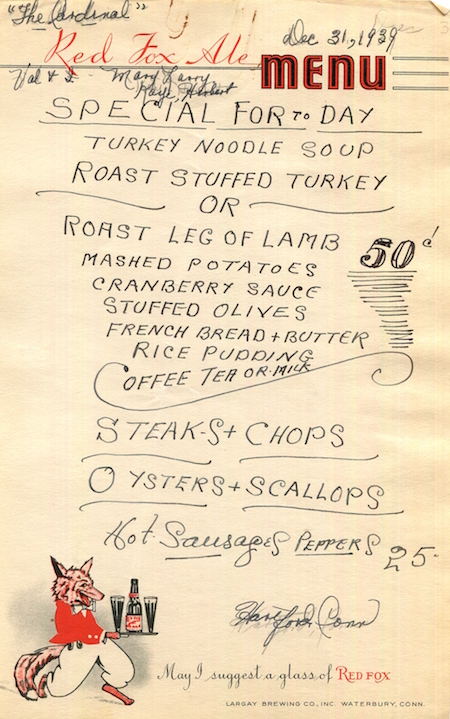 "The Cardinal"
Dec 31, 1939
Red Fox Ale MENU
Val & I - Mary Larry
Kaye, Herbert
SPECIAL FOR TO DAY
TURKEY NOODLE SOUP
ROAST STUFFED TURKEY
OR
ROAST LEG OF LAMB 50¢
MASHED POTATOES
CRANBERRY SAUCE
STUFFED OLIVES
FRENCH BREAD + BUTTER
RICE PUDDING
COFFEE TEA OR MILK
STEAK-S + CHOPS
OYSTERS + SCALLOPS
Hot SausageS PEPPERS 25-
Hartford, Conn
May I suggest a glass of RED FOX
LARGAY BREWING CO., INC. WATERBURY, CONN.